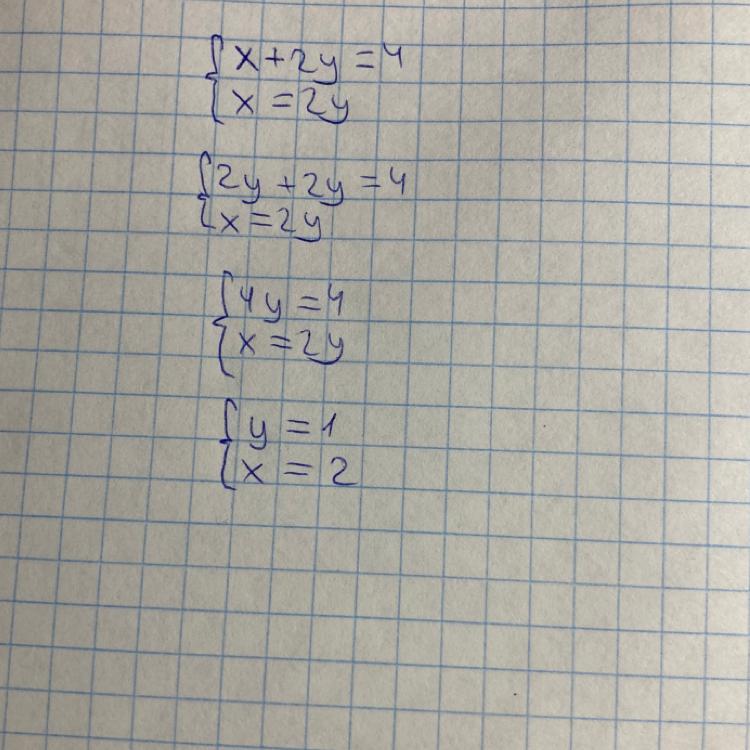 x+2y=4
x=2y
2y+2y=4
x=2y
4y=4
x=2y
y=1
x=2